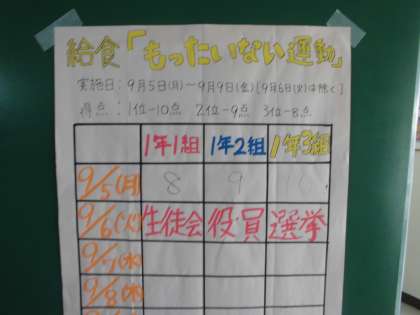 給食「もったいない運動」
実施日：9月5日(月)～9月9日(金)[9月6日(火)は除く]
得点：1位-10点 2位-9点 3位-8点
1年1組 1年2組 1年3組
9/5(月) 8 9 10
9/6(火) 生徒会 役員 選挙
9/7(水)
9/8(木)